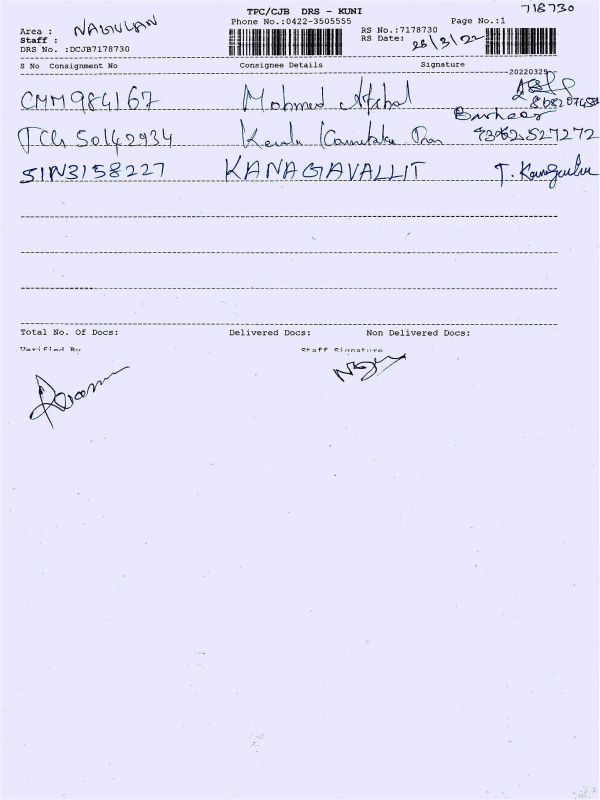 TPC/CJB DRS - KUNI 718730
Phone No.:0422-3505555 Page No.:1
Area : NAGULAN
Staff :
RS No.:7178730
RS Date: 28/3/22
DRS No. :DCJB7178730
S No Consignment No Consignee Details Signature
20220329
CMM984167 Mohmed Afshal
TCG50142934 Kerala Karnataka 93062527272
SIN3158227 KANAGAVALLIT T.
Total No. Of Docs: Delivered Docs: Non Delivered Docs:
Verified By Staff Signature